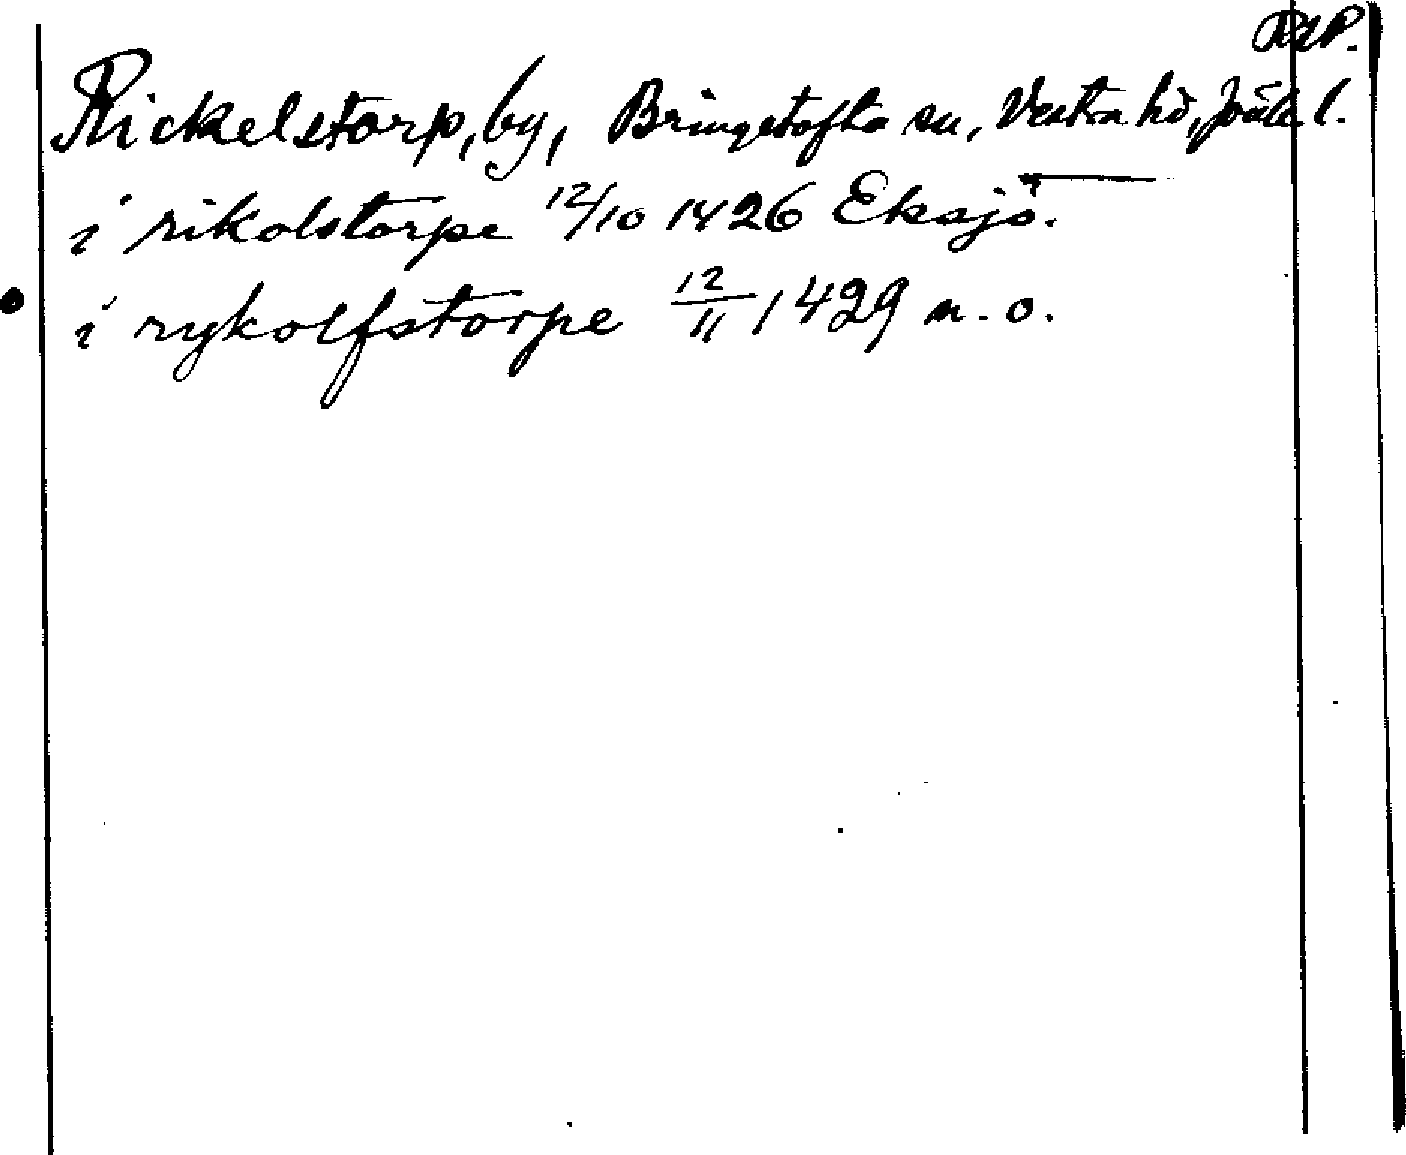 RAP.
Rickelstorp, by, Bringetofta sn, Västra hd, Jönk. l.
i rikolstorpe 12/10 1426 Eksjö.
i rykolfstorpe 12/11 1429 n. o.